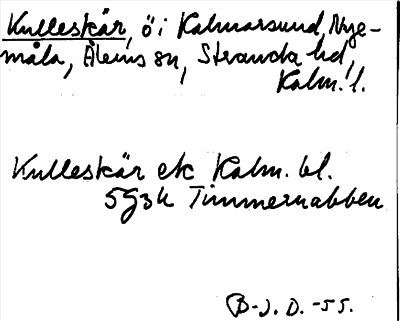 Kulleskär, ö i Kalmarsund, Nye-
måla, Ålems sn, Stranda hd,
Kalm. l.
Kulleskär ek Kalm. bl.
5G3h Timmernabben
B-J. D. -55.